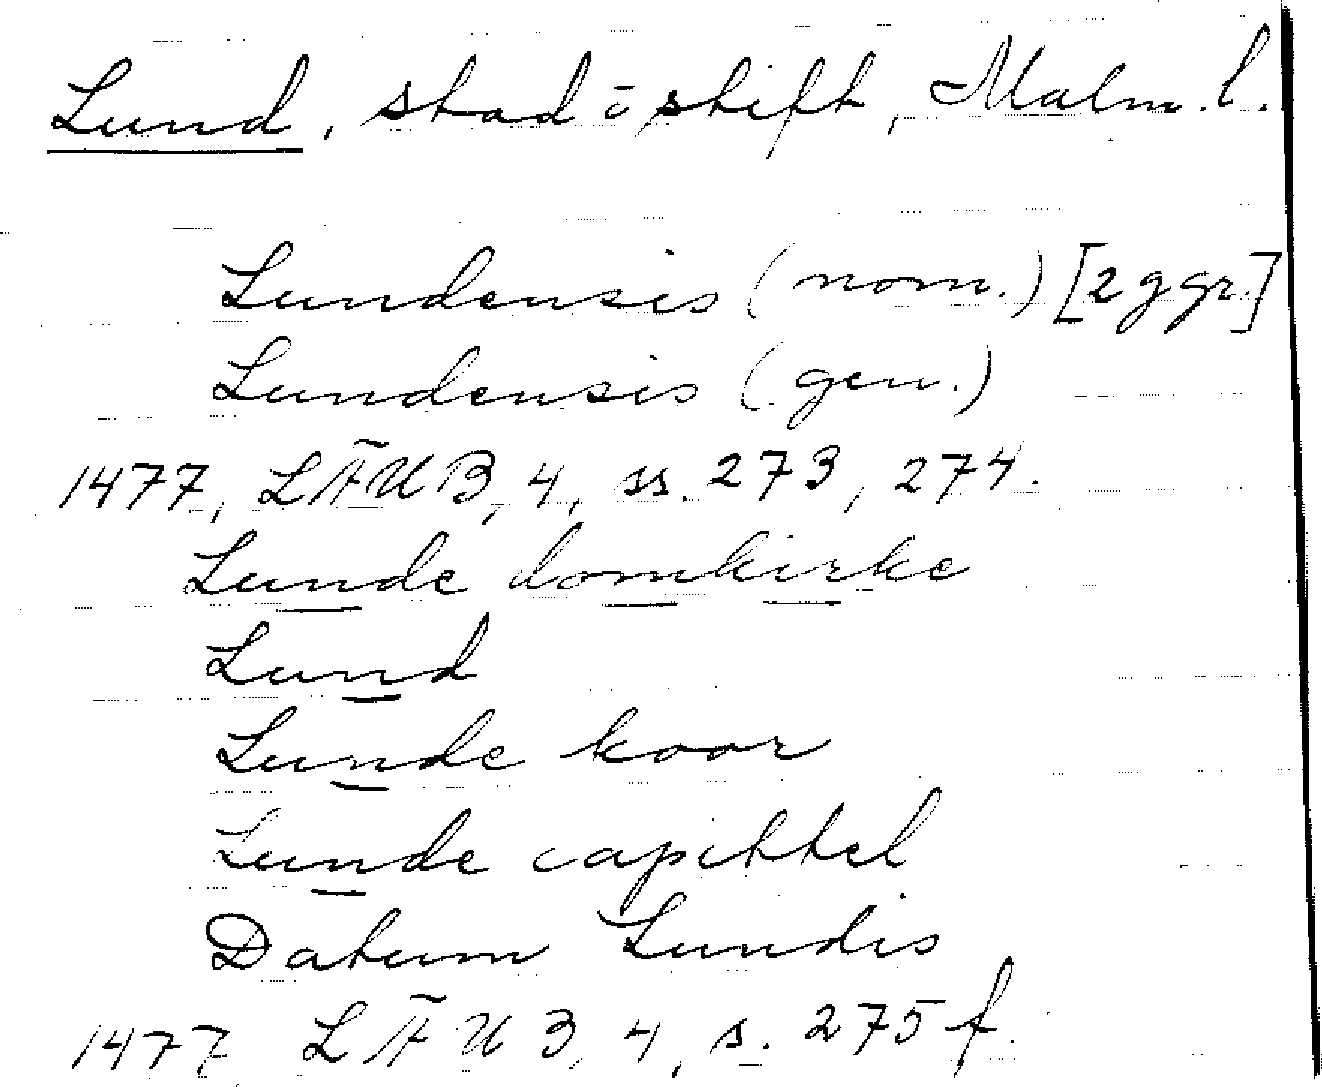 Lund, stad o stift, Malm. l.
Lundensis (nom.) [2 ggr.]
Lundensis (gen.)
1477, LÄUB, 4, ss. 273, 274.
Lunde domkirke
Lund
Lunde koor
Lunde capittel
Datum Lundis
1477 LÄUB, 4, s. 275 f.